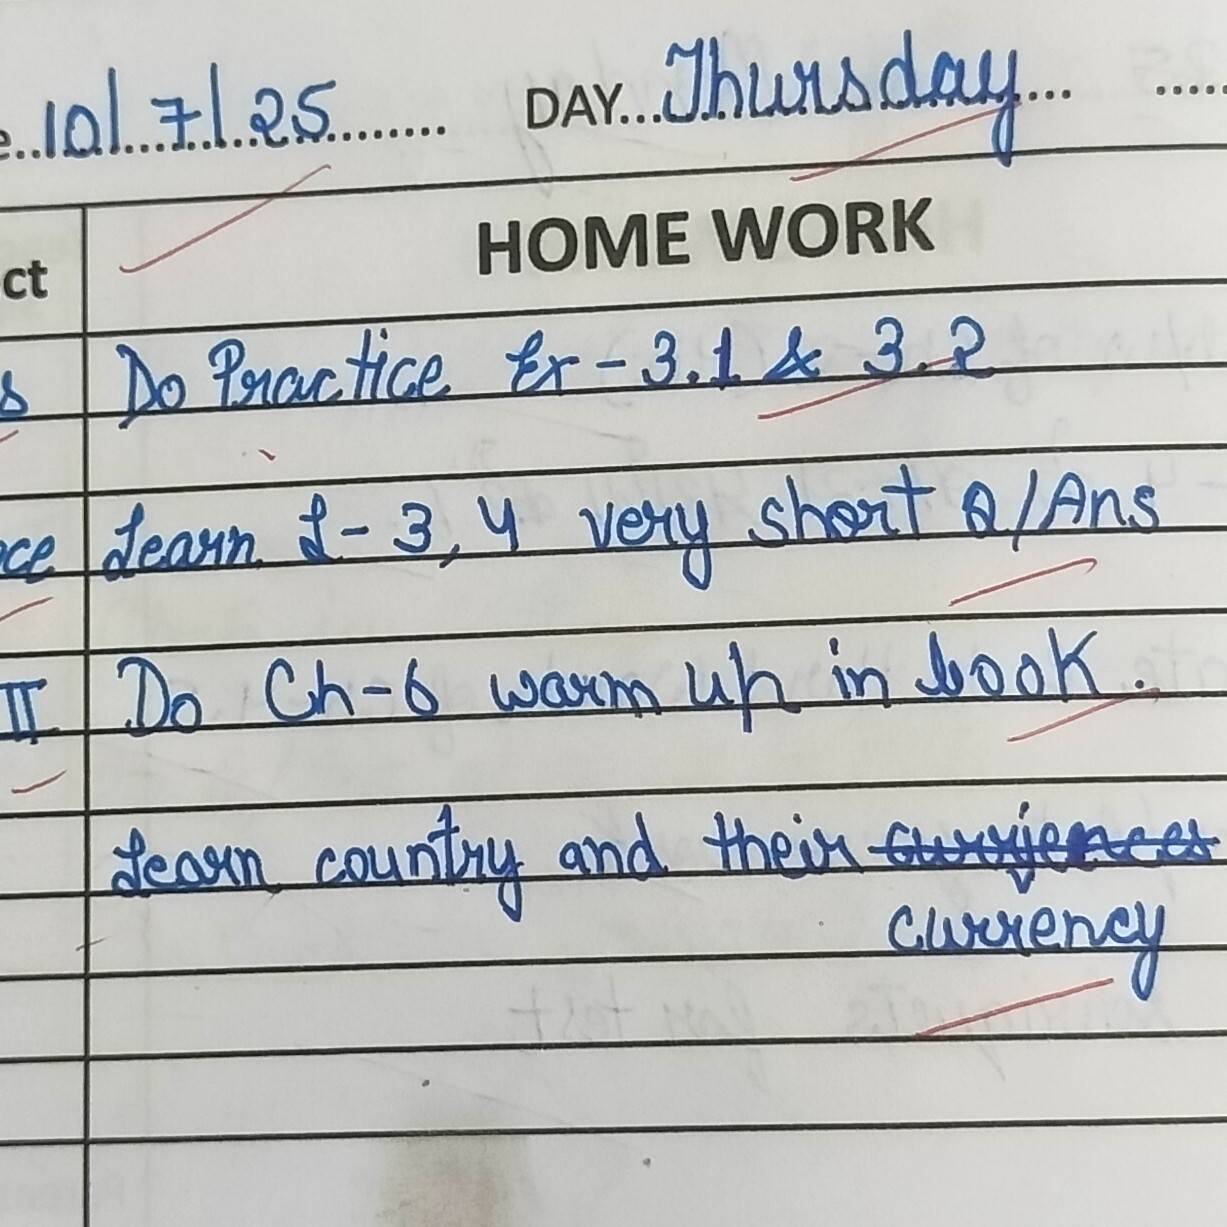 e..10/7/25........ DAY...Thursday...
ct HOME WORK
s Do Practice Ex - 3.1 & 3.2
ce Learn L - 3, 4 very short Q/Ans
II Do Ch-6 warm up in book.
Learn country and their
currency